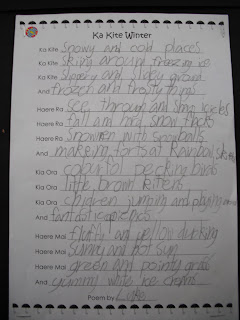 Ka Kite Winter
Ka Kite Snowy and cold places
Ka Kite Skiing around freezing ice
Ka Kite Slippery and slidey ground
And frozen and frosty things
Haere Ra see through and sharp icicles
Haere Ra fall and hard snow flicks
Haere Ra snowmen with snowballs
And making forts at Rainbow
Kia Ora colourful pecking birds
Kia Ora little brown kittens
Kia Ora children jumping and playing
And fantastic
Haere Mai fluffy and yellow duckling
Haere Mai sunny and hot sun
Haere Mai green and pointy grass
And yummy white ice cream
Poem by